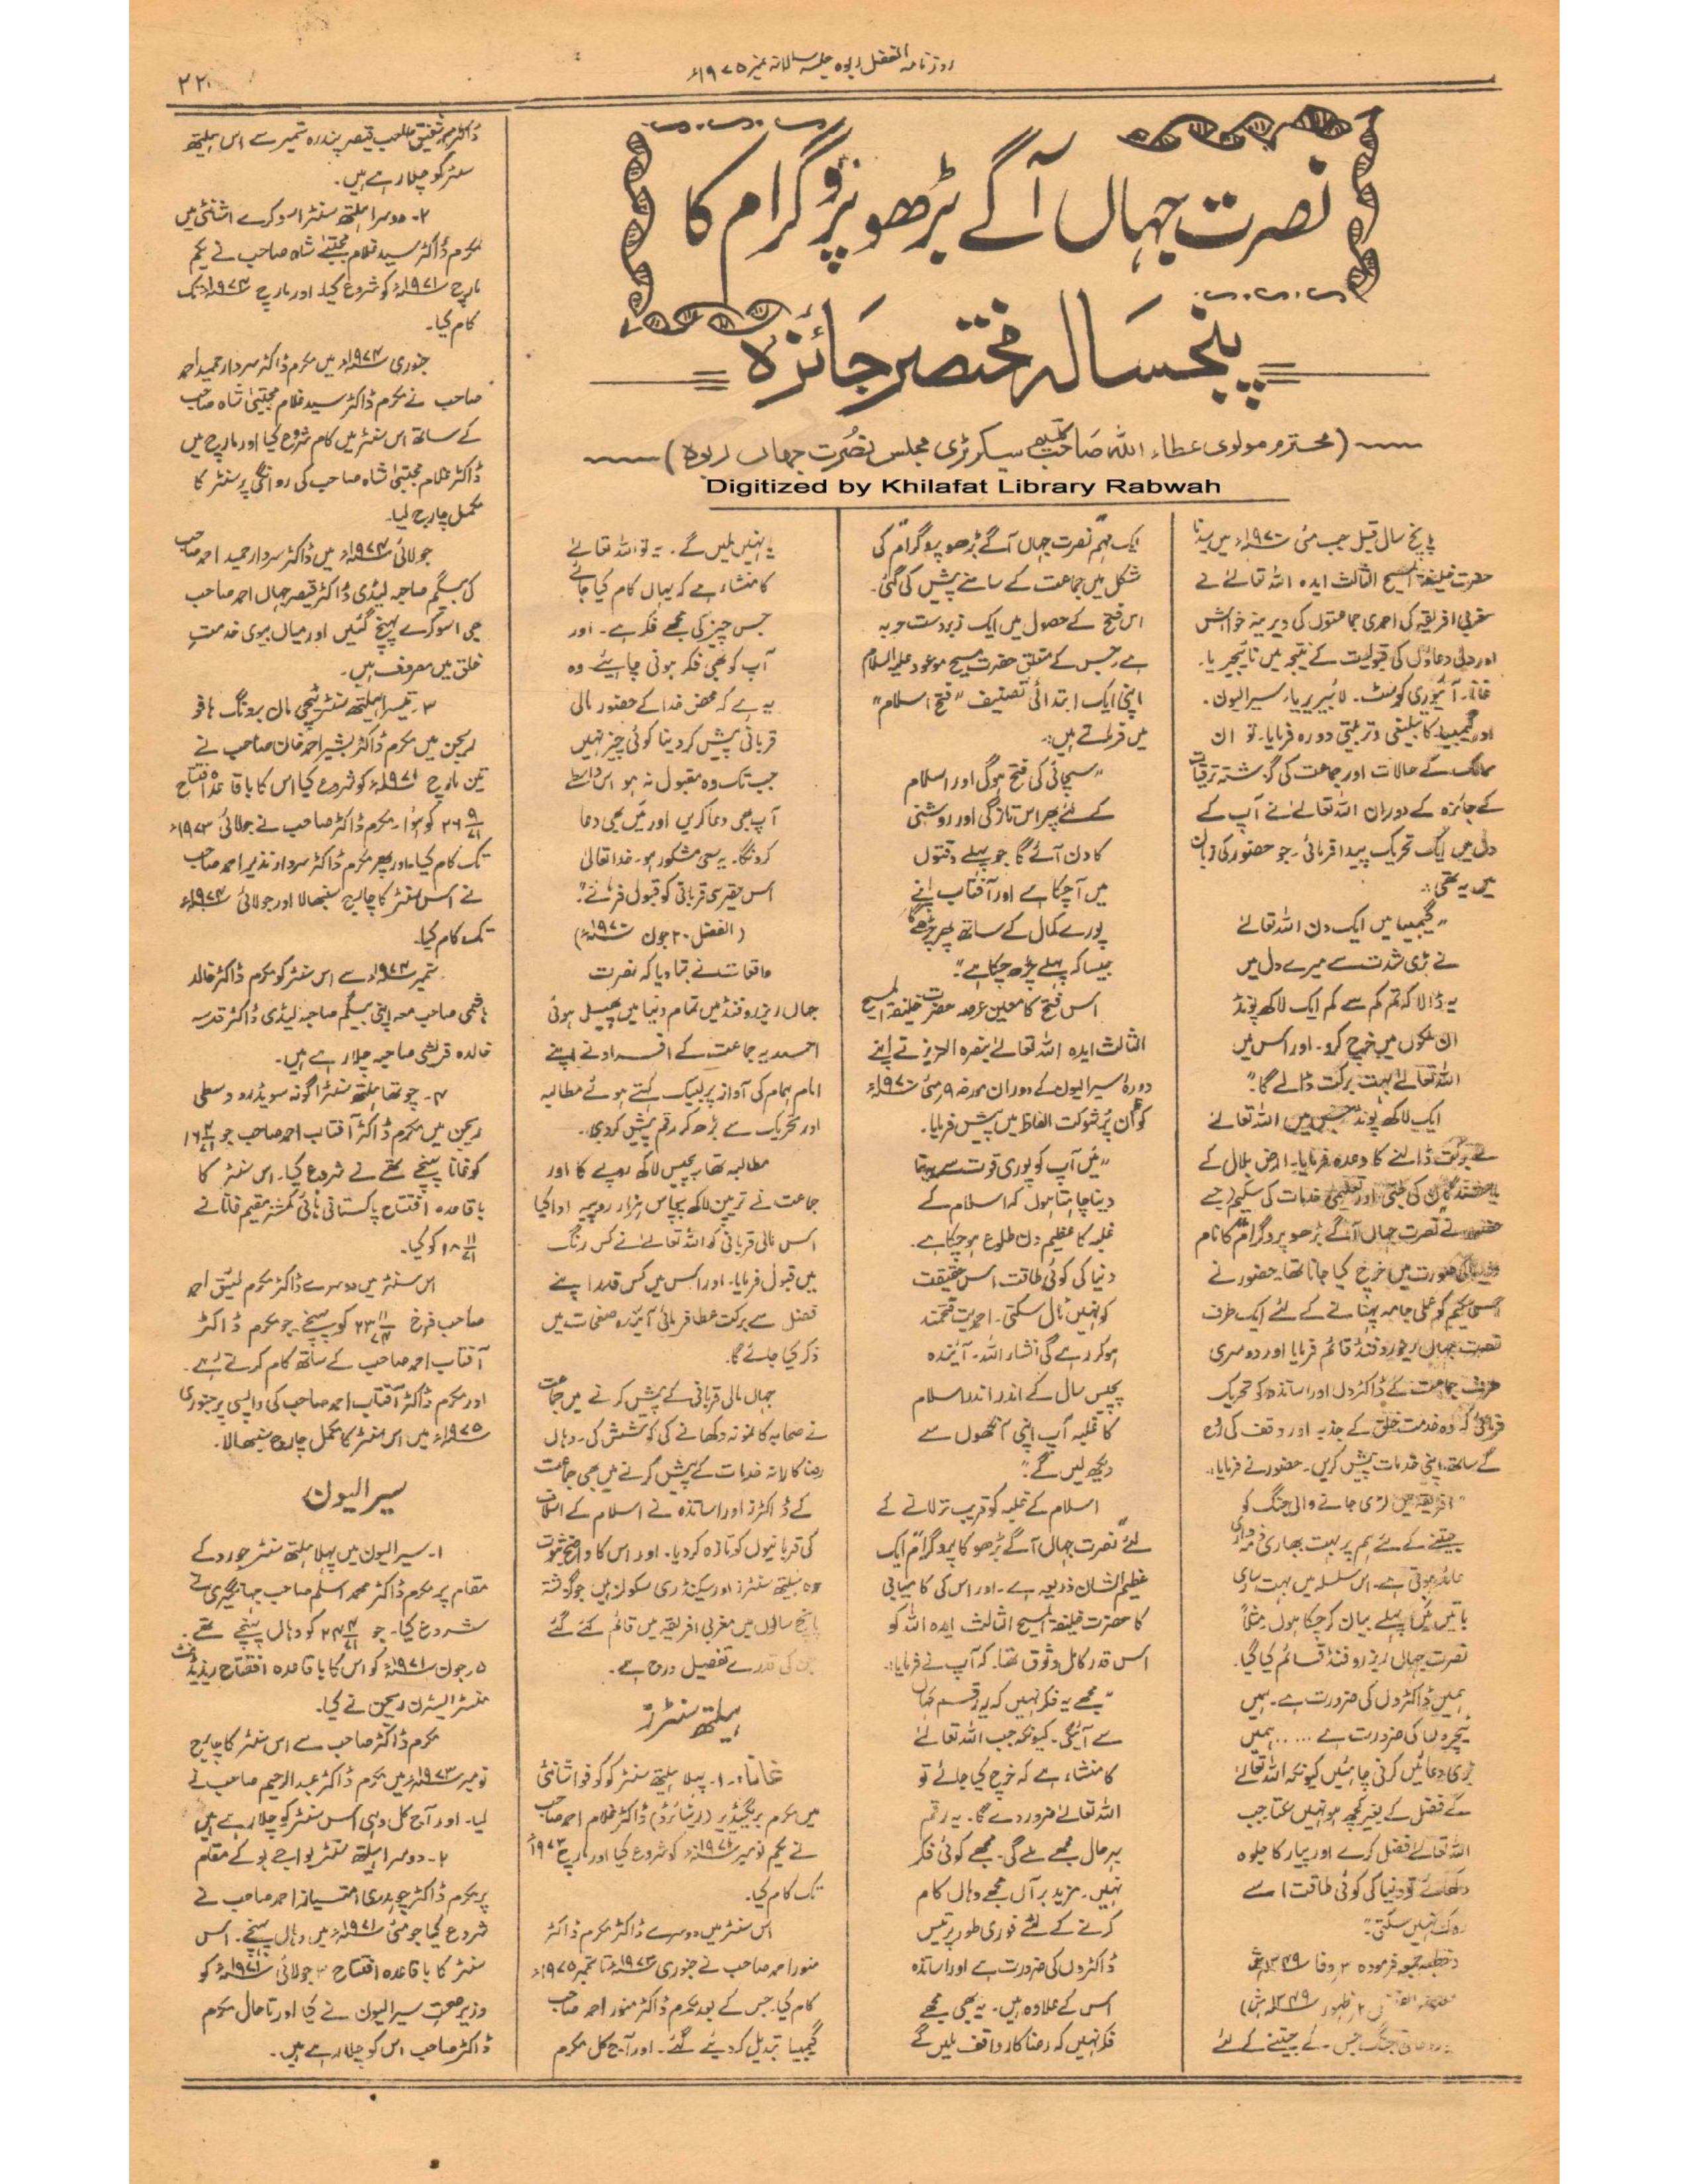 روزنامہ الفضل ربوہ جلسہ سالانہ نمبر ۱۹۷۵ء
۲۲
نصرت جہاں آگے بڑھو پروگرام کا
پنجسالہ مختصر جائزہ
(محترم مولوی عطاء اللہ صاحب کلیم سیکرٹری مجلس نصرت جہاں ربوہ)
Digitized by Khilafat Library Rabwah
پانچ سال قبل جب مئی ۱۹۷۰ء میں سیدنا
حضرت خلیفۃ المسیح الثالث ایدہ اللہ تعالےٰ نے
مغربی افریقہ کی احمدی جماعتوں کی دیرینہ خواہش
اور دلی دعاؤں کی قبولیت کے نتیجہ میں نائیجیریا۔
غانا۔ آئیوری کوسٹ۔ لائبیریا۔ سیرالیون۔
اور گیمبیا کا تبلیغی و تربیتی دورہ فرمایا۔ تو ان
ممالک کے حالات اور جماعت کی گزشتہ ترقیات
کے جائزہ کے دوران اللہ تعالےٰ نے آپ کے
دل میں ایک تحریک پیدا فرمائی۔ جو حضور کی زبان
میں یہ تھی:۔
"گیمبیا میں ایک دن اللہ تعالےٰ
نے بڑی شدت سے میرے دل میں
یہ ڈالا کہ تم کم سے کم ایک لاکھ پونڈ
ان ملکوں میں خرچ کرو۔ اور اس میں
اللہ تعالےٰ بہت برکت ڈالے گا"
ایک لاکھ پونڈ جس میں اللہ تعالےٰ
نے برکت ڈالنے کا وعدہ فرمایا۔ ارض بلال کے
باشندگان کی طبی اور تعلیمی خدمات کی سکیم (جسے
حضور نے نصرت جہاں آگے بڑھو پروگرام کا نام
کی صورت میں خرچ کیا جانا تھا۔ حضور نے
اس سکیم کو عملی جامہ پہنانے کے لئے ایک طرف
نصرت جہاں ریزرو فنڈ قائم فرمایا اور دوسری
طرف جماعت کے ڈاکٹروں اور اساتذہ کو تحریک
فرمائی کہ وہ خدمت خلق کے جذبہ اور وقف کی روح
کے ساتھ اپنی خدمات پیش کریں۔ حضور نے فرمایا:۔
"افریقہ میں لڑی جانے والی جنگ کو
جیتنے کے لئے ہم پر بہت بھاری ذمہ داری
عائد ہوتی ہے۔ اس سلسلہ میں بہت ساری
باتیں میں پہلے بیان کر چکا ہوں۔ مثلاً
نصرت جہاں ریزرو فنڈ قائم کیا گیا۔
ہمیں ڈاکٹروں کی ضرورت ہے۔ ہمیں
ٹیچروں کی ضرورت ہے ..... ہمیں
بڑی دعائیں کرنی چاہئیں کیونکہ اللہ تعالےٰ
کے فضل کے بغیر کچھ ہو نہیں سکتا جب
اللہ تعالےٰ فضل کرے اور پیار کا جلوہ
دکھائے تو دنیا کی کوئی طاقت اسے
روک نہیں سکتی"
(خطبہ جمعہ فرمودہ ۳ وفا ۱۳۴۹ہش
ظہور ۱۳۴۹ہش)
روحانی جنگ جس کے جیتنے کے لئے
ایک مہم "نصرت جہاں آگے بڑھو پروگرام" کی
شکل میں جماعت کے سامنے پیش کی گئی۔
اس فتح کے حصول میں ایک زبردست حربہ
ہے جس کے متعلق حضرت مسیح موعود علیہ السلام
اپنی ایک ابتدائی تصنیف "فتح اسلام"
میں فرماتے ہیں:۔
"سچائی کی فتح ہوگی اور اسلام
کے لئے پھر اس تازگی اور روشنی
کا دن آئے گا جو پہلے وقتوں
میں آ چکا ہے اور آفتاب اپنے
پورے کمال کے ساتھ پھر چڑھے گا
جیسا کہ پہلے چڑھ چکا ہے"
اس فتح کا معین عرصہ حضرت خلیفۃ المسیح
الثالث ایدہ اللہ تعالےٰ بنصرہ العزیز نے اپنے
دورۂ سیرالیون کے دوران مورخہ ۹ مئی ۱۹۷۰ء
کو ان پُر شوکت الفاظ میں پیش فرمایا۔
"میں آپ کو پوری قوت سے بتا
دینا چاہتا ہوں کہ اسلام کے
غلبہ کا عظیم دن طلوع ہو چکا ہے۔
دنیا کی کوئی طاقت اس حقیقت
کو نہیں ٹال سکتی۔ احمدیت فتحمند
ہو کر رہے گی انشاء اللہ۔ آئندہ
پچیس سال کے اندر اندر اسلام
کا غلبہ آپ اپنی آنکھوں سے
دیکھ لیں گے"
اسلام کے غلبہ کو قریب تر لانے کے
لئے "نصرت جہاں آگے بڑھو کا پروگرام" ایک
عظیم الشان ذریعہ ہے۔ اور اس کی کامیابی
کا حضرت خلیفۃ المسیح الثالث ایدہ اللہ کو
اس قدر کامل وثوق تھا۔ کہ آپ نے فرمایا:۔
"مجھے یہ فکر نہیں کہ یہ رقم کہاں
سے آئیگی۔ کیونکہ جب اللہ تعالےٰ
کا منشاء ہے کہ خرچ کیا جائے تو
اللہ تعالےٰ ضرور دے گا۔ یہ رقم
بہرحال مجھے ملے گی۔ مجھے کوئی فکر
نہیں۔ مزید برآں مجھے وہاں کام
کرنے کے لئے فوری طور پر تیس
ڈاکٹروں کی ضرورت ہے اور اساتذہ
اس کے علاوہ ہیں۔ یہ بھی مجھے
فکر نہیں کہ رضاکار واقف ملیں گے
یا نہیں ملیں گے۔ یہ تو اللہ تعالےٰ
کا منشاء ہے کہ یہاں کام کیا جائے
جس چیز کی مجھے فکر ہے۔ اور
آپ کو بھی فکر ہونی چاہئیے۔ وہ
یہ ہے کہ محض خدا کے حضور مالی
قربانی پیش کر دینا کوئی چیز نہیں
جب تک وہ مقبول نہ ہو اس واسطے
آپ بھی دعا کریں اور میں بھی دعا
کرونگا۔ یہ سعی مشکور ہو۔ خدا تعالیٰ
اس حقیر سی قربانی کو قبول فرمائے"
(الفضل ۲۰ جون ۱۹۷۰ء)
واقعات نے بتا دیا کہ نصرت
جہاں ریزرو فنڈ میں تمام دنیا میں پھیلی ہوئی
احمدیہ جماعت کے افراد نے اپنے
امام ہمام کی آواز پر لبیک کہتے ہوئے مطالبہ
اور تحریک سے بڑھ کر رقم پیش کر دی۔
مطالبہ تھا پچیس لاکھ روپے کا اور
جماعت نے ترپن لاکھ پچاس ہزار روپیہ ادا کیا
اس مالی قربانی کو اللہ تعالےٰ نے کس رنگ
میں قبول فرمایا۔ اور اس میں کس قدر اپنے
فضل سے برکت عطا فرمائی آئندہ صفحات میں
ذکر کیا جائے گا۔
جہاں مالی قربانی کے پیش کرنے میں جماعت
نے صحابہ کا نمونہ دکھانے کی کوشش کی۔ وہاں
رضاکارانہ خدمات کے پیش کرنے میں بھی جماعت
کے ڈاکٹرز اور اساتذہ نے اسلام کے اسلاف
کی قربانیوں کو تازہ کر دیا۔ اور اس کا واضح ثبوت
وہ ہیلتھ سنٹرز اور سیکنڈری سکولز ہیں جو گذشتہ
پانچ سالوں میں مغربی افریقہ میں قائم کئے گئے
جن کی قدرے تفصیل درج ہے۔
ہیلتھ سنٹرز
غانا:۔ ۱۔ پہلا ہیلتھ سنٹر کوکوفو اشانٹی
میں مکرم بریگیڈیر (ریٹائرڈ) ڈاکٹر غلام احمد صاحب
نے یکم نومبر ۱۹۷۰ء کو شروع کیا اور مارچ ۱۹۷۳ء
تک کام کیا۔
اس سنٹر میں دوسرے ڈاکٹر مکرم ڈاکٹر
منور احمد صاحب نے جنوری ۱۹۷۳ء تا ستمبر ۱۹۷۵ء
کام کیا۔ جس کے بعد مکرم ڈاکٹر منور احمد صاحب
گیمبیا تبدیل کر دیئے گئے۔ اور آج کل مکرم
ڈاکٹر محمد شفیق صاحب قیصر پندرہ ستمبر سے اس ہیلتھ
سنٹر کو چلا رہے ہیں۔
۲۔ دوسرا ہیلتھ سنٹر اسوکرے اشنٹی میں
مکرم ڈاکٹر سید غلام مجتبےٰ شاہ صاحب نے یکم
مارچ ۱۹۷۱ء کو شروع کیا۔ اور مارچ ۱۹۷۴ء تک
کام کیا۔
جنوری ۱۹۷۴ء میں مکرم ڈاکٹر سردار حمید احمد
صاحب نے مکرم ڈاکٹر سید غلام مجتبیٰ شاہ صاحب
کے ساتھ اس سنٹر میں کام شروع کیا اور مارچ میں
ڈاکٹر غلام مجتبیٰ شاہ صاحب کی روانگی پر سنٹر کا
مکمل چارج لیا۔
جولائی ۱۹۷۴ء میں ڈاکٹر سردار حمید احمد صاحب
کی بیگم صاحبہ لیڈی ڈاکٹر قیصر جہاں احمد صاحب
بھی اسوکرے پہنچ گئیں اور میاں بیوی خدمتِ
خلق میں مصروف ہیں۔
۳۔ تیسرا ہیلتھ سنٹر ٹیچی مان برونگ ہافو
ریجن میں مکرم ڈاکٹر بشیر احمد خان صاحب نے
تین مارچ ۱۹۷۱ء کو شروع کیا اس کا باقاعدہ افتتاح
۲۶ ۹/۷۱ کو ہوا۔ مکرم ڈاکٹر صاحب نے جولائی ۱۹۷۳ء
تک کام کیا۔ اور پھر مکرم ڈاکٹر سردار نذیر احمد صاحب
نے اس سنٹر کا چارج سنبھالا اور جولائی ۱۹۷۴ء
تک کام کیا۔
ستمبر ۱۹۷۴ء سے اس سنٹر کو مکرم ڈاکٹر خالد
ہاشمی صاحب معہ اپنی بیگم صاحبہ لیڈی ڈاکٹر قدسیہ
خالدہ قریشی صاحبہ چلا رہے ہیں۔
۴۔ چوتھا ہیلتھ سنٹر اگونہ سویڈرو وسطی
ریجن میں مکرم ڈاکٹر آفتاب احمد صاحب جو ۱۶ ۴/۷۱
کو غانا پہنچے تھے نے شروع کیا۔ اس سنٹر کا
باقاعدہ افتتاح پاکستانی ہائی کمشنر مقیم غانا نے
۱۸ ۱۱/۷۱ کو کیا۔
اس سنٹر میں دوسرے ڈاکٹر مکرم لئیق احمد
صاحب فرخ ۲۳ ۱۱/۷۴ کو پہنچے۔ جو مکرم ڈاکٹر
آفتاب احمد صاحب کے ساتھ کام کرتے رہے۔
اور مکرم ڈاکٹر آفتاب احمد صاحب کی واپسی پر جنوری
۱۹۷۵ء میں اس سنٹر کا مکمل چارج سنبھالا۔
سیرالیون
۱۔ سیرالیون میں پہلا ہیلتھ سنٹر جورو کے
مقام پر مکرم ڈاکٹر محمد اسلم صاحب جہانگیری نے
شروع کیا۔ جو ۲۴ ۴/۷۱ کو وہاں پہنچے تھے۔
۵ جون ۱۹۷۱ء کو اس کا باقاعدہ افتتاح ریذیڈنٹ
منسٹر ایسٹرن ریجن نے کیا۔
مکرم ڈاکٹر صاحب سے اس سنٹر کا چارج
نومبر ۱۹۷۳ء میں مکرم ڈاکٹر عبدالرحیم صاحب نے
لیا۔ اور آج کل وہی اس سنٹر کو چلا رہے ہیں
۲۔ دوسرا ہیلتھ سنٹر بواجے بو کے مقام
پر مکرم ڈاکٹر چوہدری امتیاز احمد صاحب نے
شروع کیا جو مئی ۱۹۷۱ء میں وہاں پہنچے۔ اس
سنٹر کا باقاعدہ افتتاح ۳ جولائی ۱۹۷۱ء کو
وزیر صحت سیرالیون نے کیا اور تا حال مکرم
ڈاکٹر صاحب اس کو چلا رہے ہیں۔